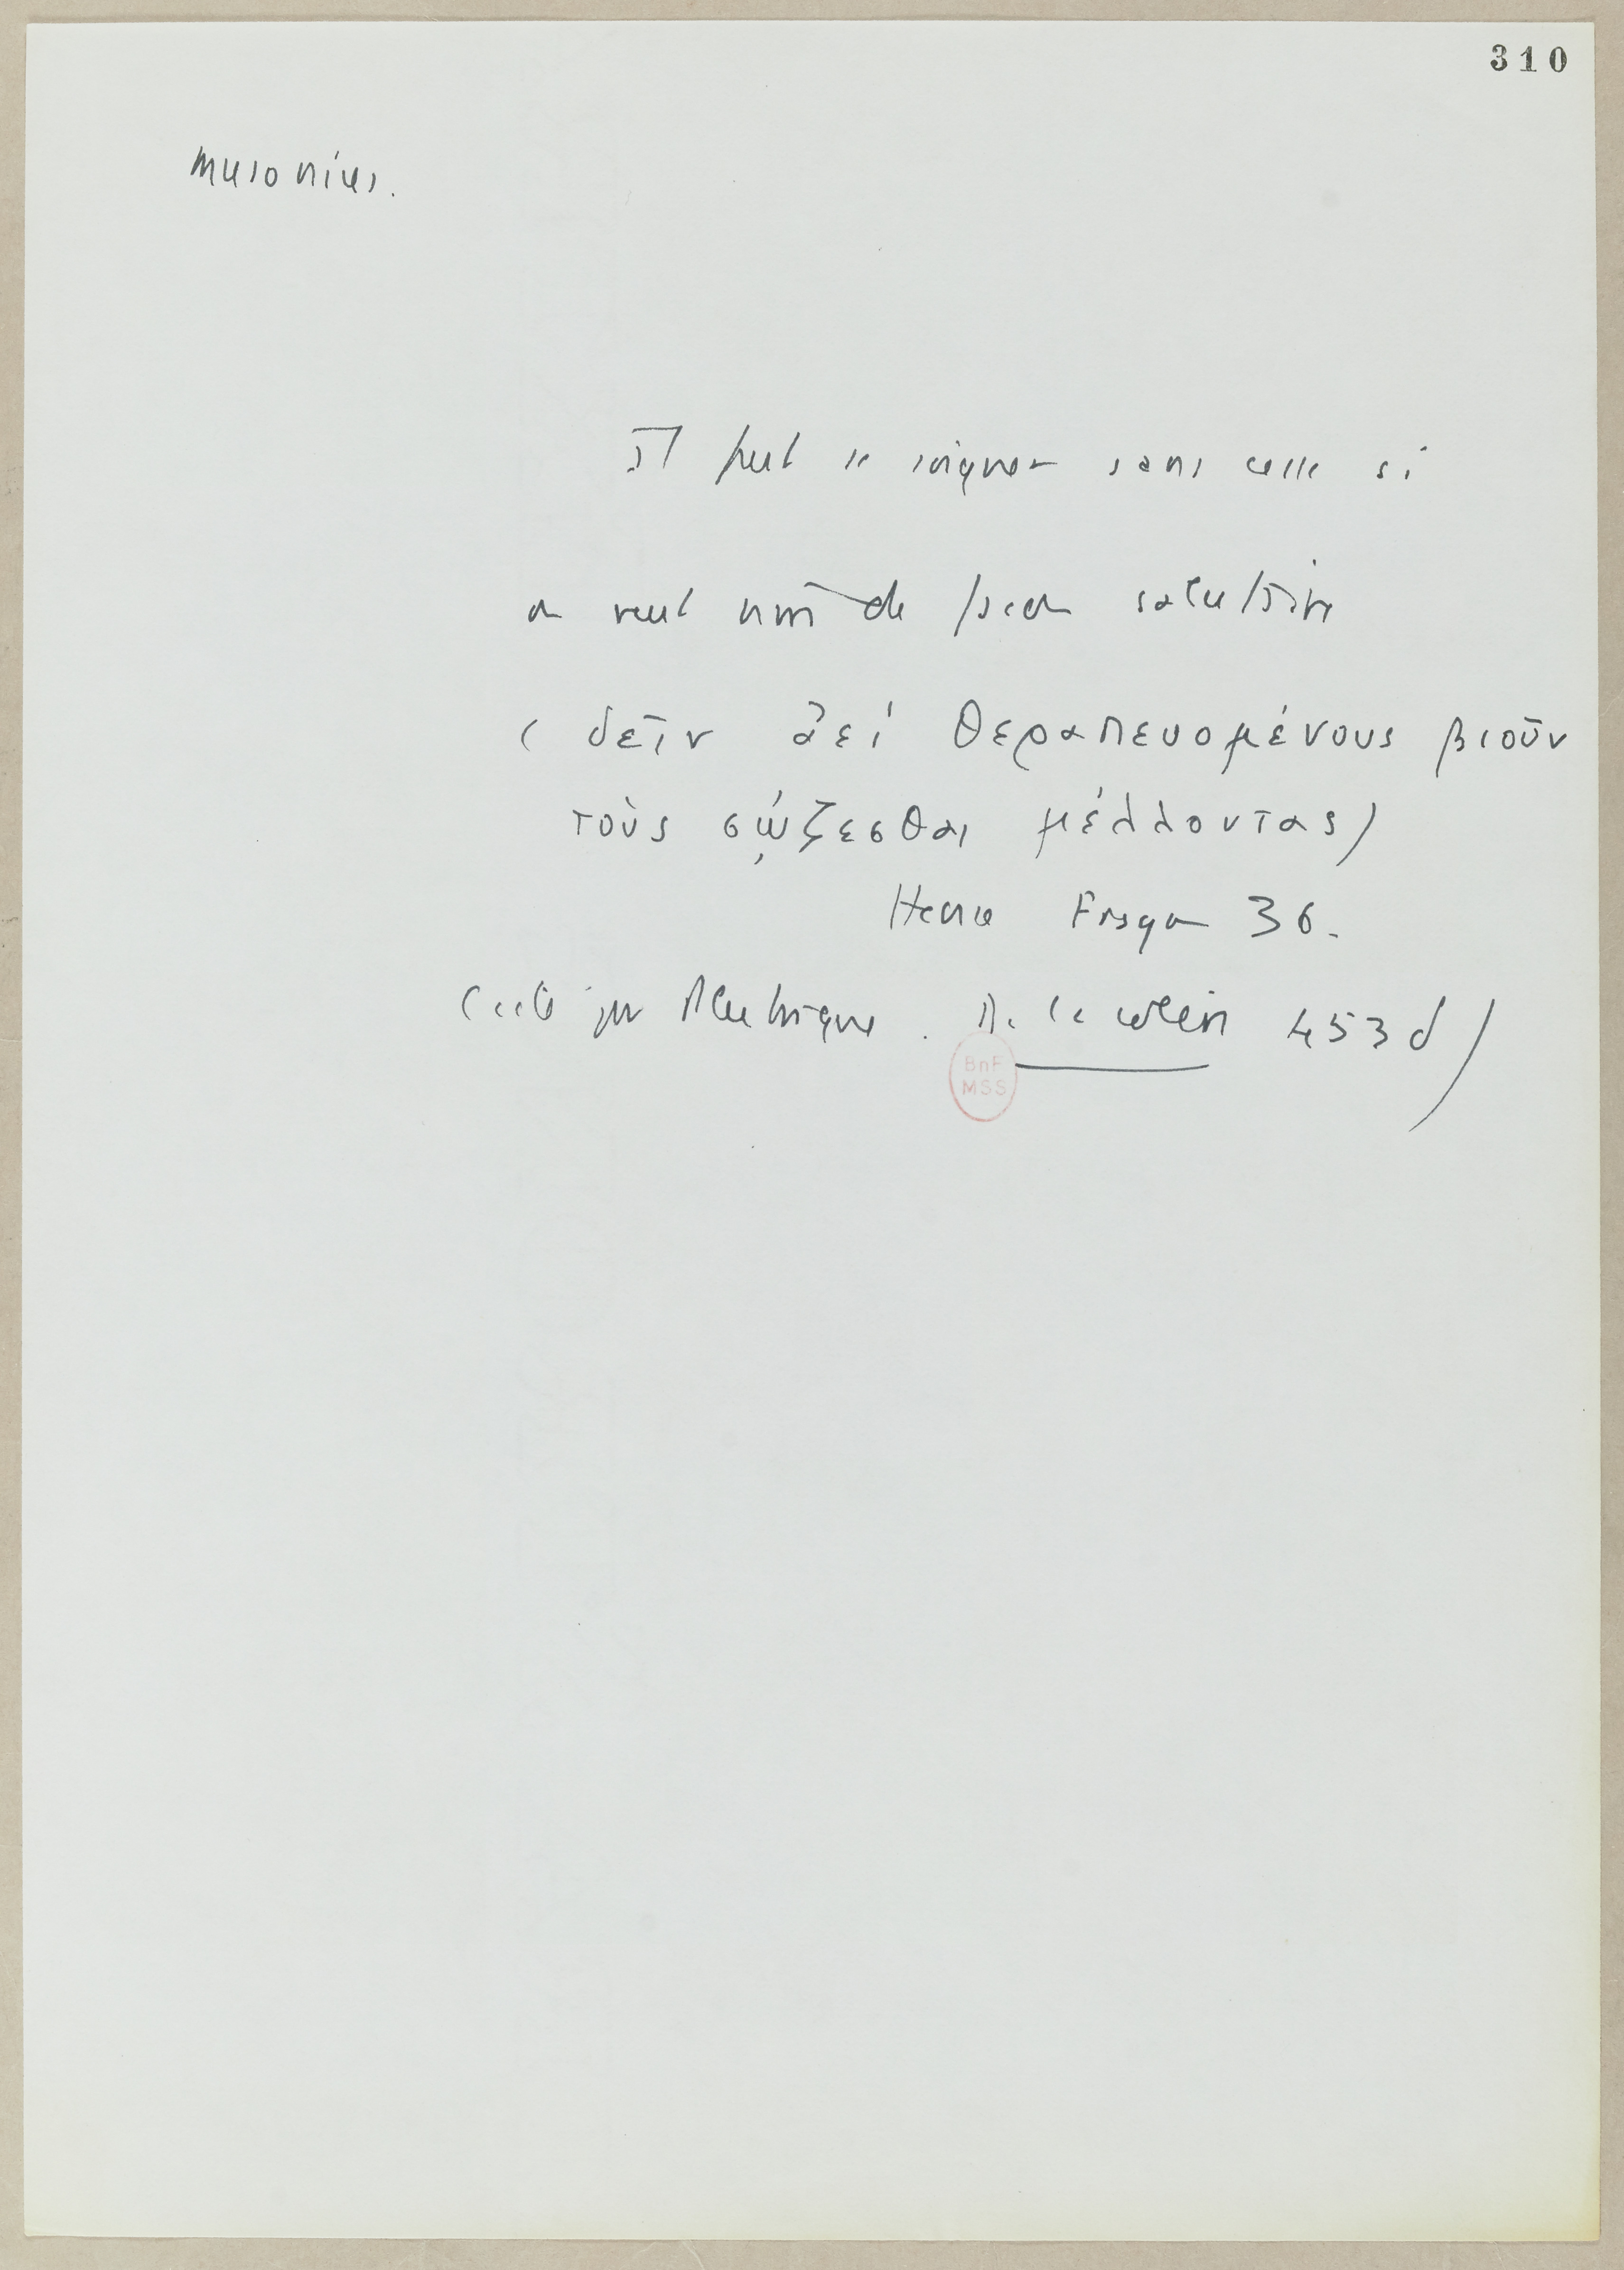 310
Musonius.
Il faut se soigner sans cesse si
on veut vivre de façon salutaire
( δεῖν ἀεὶ θεραπευομένους βιοῦν
τοὺς σῴζεσθαι μέλλοντας)
Hense Fragm 36.
(cité par Plutarque. De la colère 453 d)
BnF
MSS